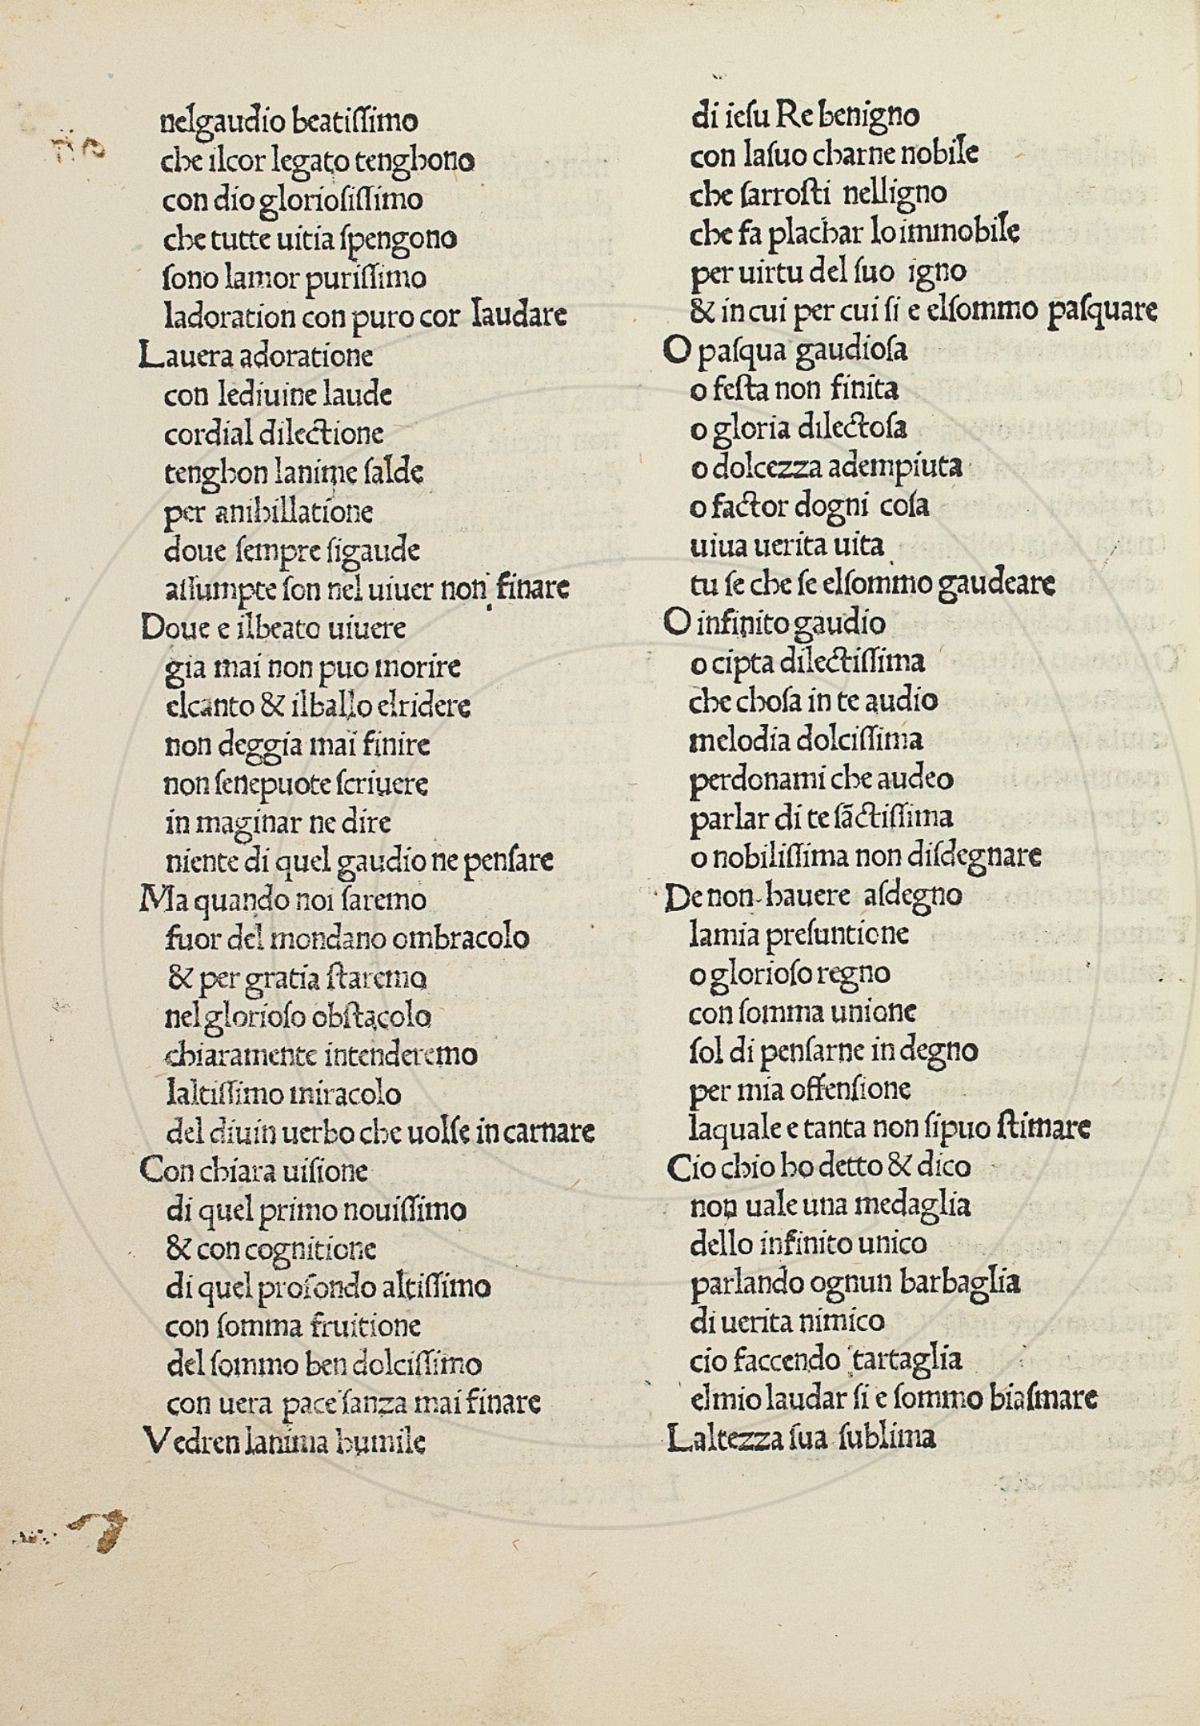 nelgaudio beatiſſimo
che ilcor legato tenghono
con dio glorioſiſſimo
che tutte uitia ſpengono
ſono lamor puriſſimo
ladoration con puro cor laudare
Lauera adoratione
con lediuine laude
cordial dilectione
tenghon lanime ſalde
per anihillatione
doue ſempre ſigaude
aſſumpte ſon nel uiuer non finare
Doue e ilbeato uiuere
gia mai non puo morire
elcanto & ilballo elridere
non deggia mai finire
non ſenepuote ſcriuere
in maginar ne dire
niente di quel gaudio ne penſare
Ma quando noi ſaremo
fuor del mondano ombracolo
& per gratia ſtaremo
nel glorioſo obſtacolo
chiaramente intenderemo
laltiſſimo miracolo
del diuin uerbo che uolſe in carnare
Con chiara uiſione
di quel primo nouiſſimo
& con cognitione
di quel profondo altiſſimo
con ſomma fruitione
del ſommo ben dolciſſimo
con uera pace ſanza mai finare
Vedren lanima humile
di ieſu Re benigno
con laſuo charne nobile
che ſarroſti nelligno
che fa plachar lo immobile
per uirtu del ſuo igno
& in cui per cui ſi e elſommo paſquare
O paſqua gaudioſa
o feſta non finita
o gloria dilectoſa
o dolcezza adempiuta
o factor dogni coſa
uiua uerita uita
tu ſe che ſe elſommo gaudeare
O infinito gaudio
o cipta dilectiſſima
che choſa in te audio
melodia dolciſſima
perdonami che audeo
parlar di te ſāctiſſima
o nobiliſſima non diſdegnare
De non hauere aſdegno
lamia preſuntione
o glorioſo regno
con ſomma unione
ſol di penſarne in degno
per mia offenſione
laquale e tanta non ſipuo ſtimare
Cio chio ho detto & dico
non uale una medaglia
dello infinito unico
parlando ognun barbaglia
di uerita nimico
cio faccendo tartaglia
elmio laudar ſi e ſommo biaſmare
Laltezza ſua ſublima